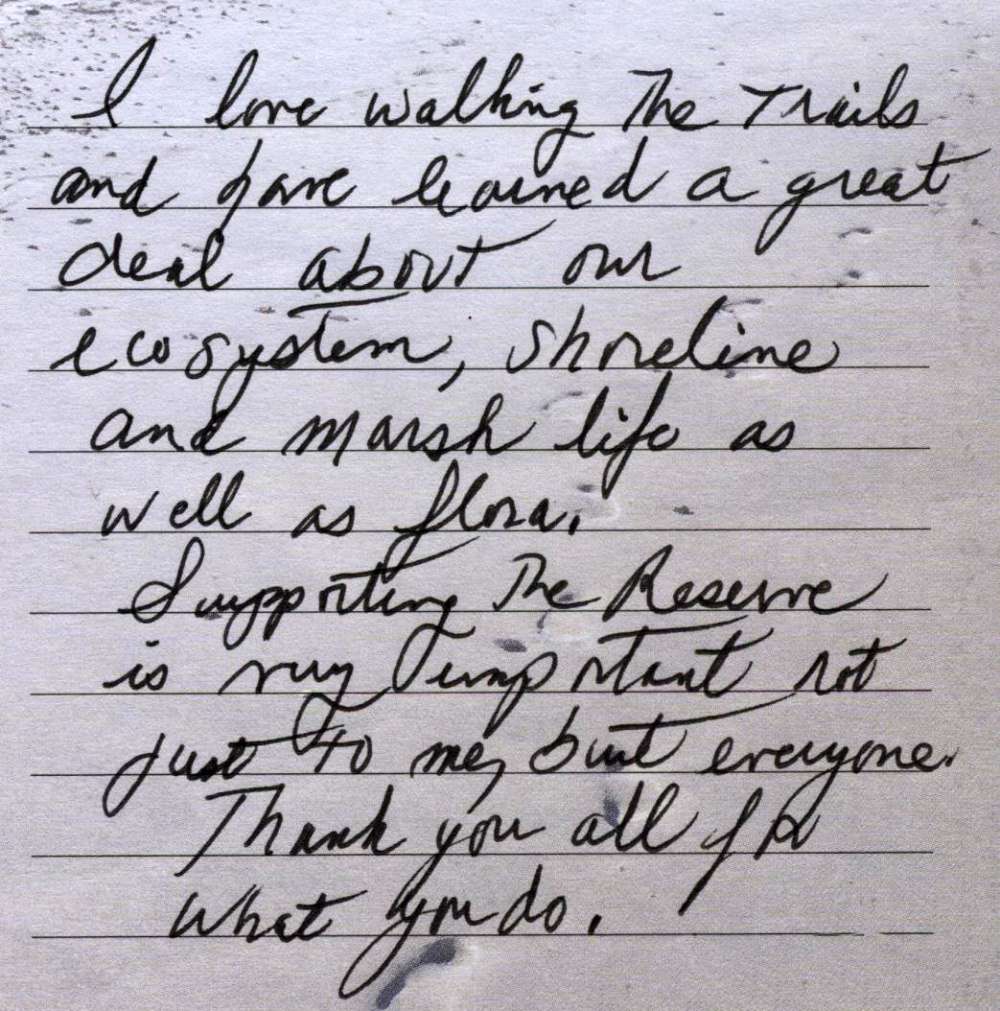 I love walking The Trails
and have learned a great
deal about our
ecosystem, shoreline
and marsh life as
well as flora.
Supporting The Reserve
is very important not
just to me, but everyone.
Thank you all for
what you do.